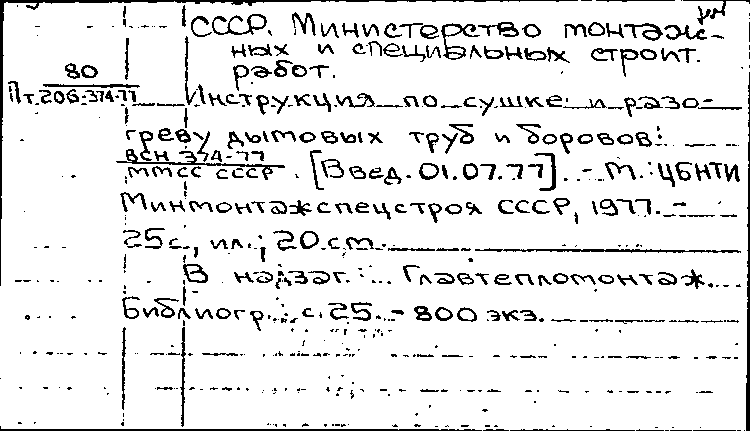 СССР. Министерство монтаж-
ных и специальных строит.
работ.
80
Пт.206-374-77
Инструкция по сушке и разо-
греву дымовых труб и боровов:
ВСН 374-77
ММСС СССР . [Введ. 01.07.77]. - М.: ЦБНТИ
Минмонтажспецстроя СССР, 1977. -
25 с., ил.; 20 см.
В надзаг.: Главтепломонтаж.
Библиогр.: с. 25. - 800 экз.